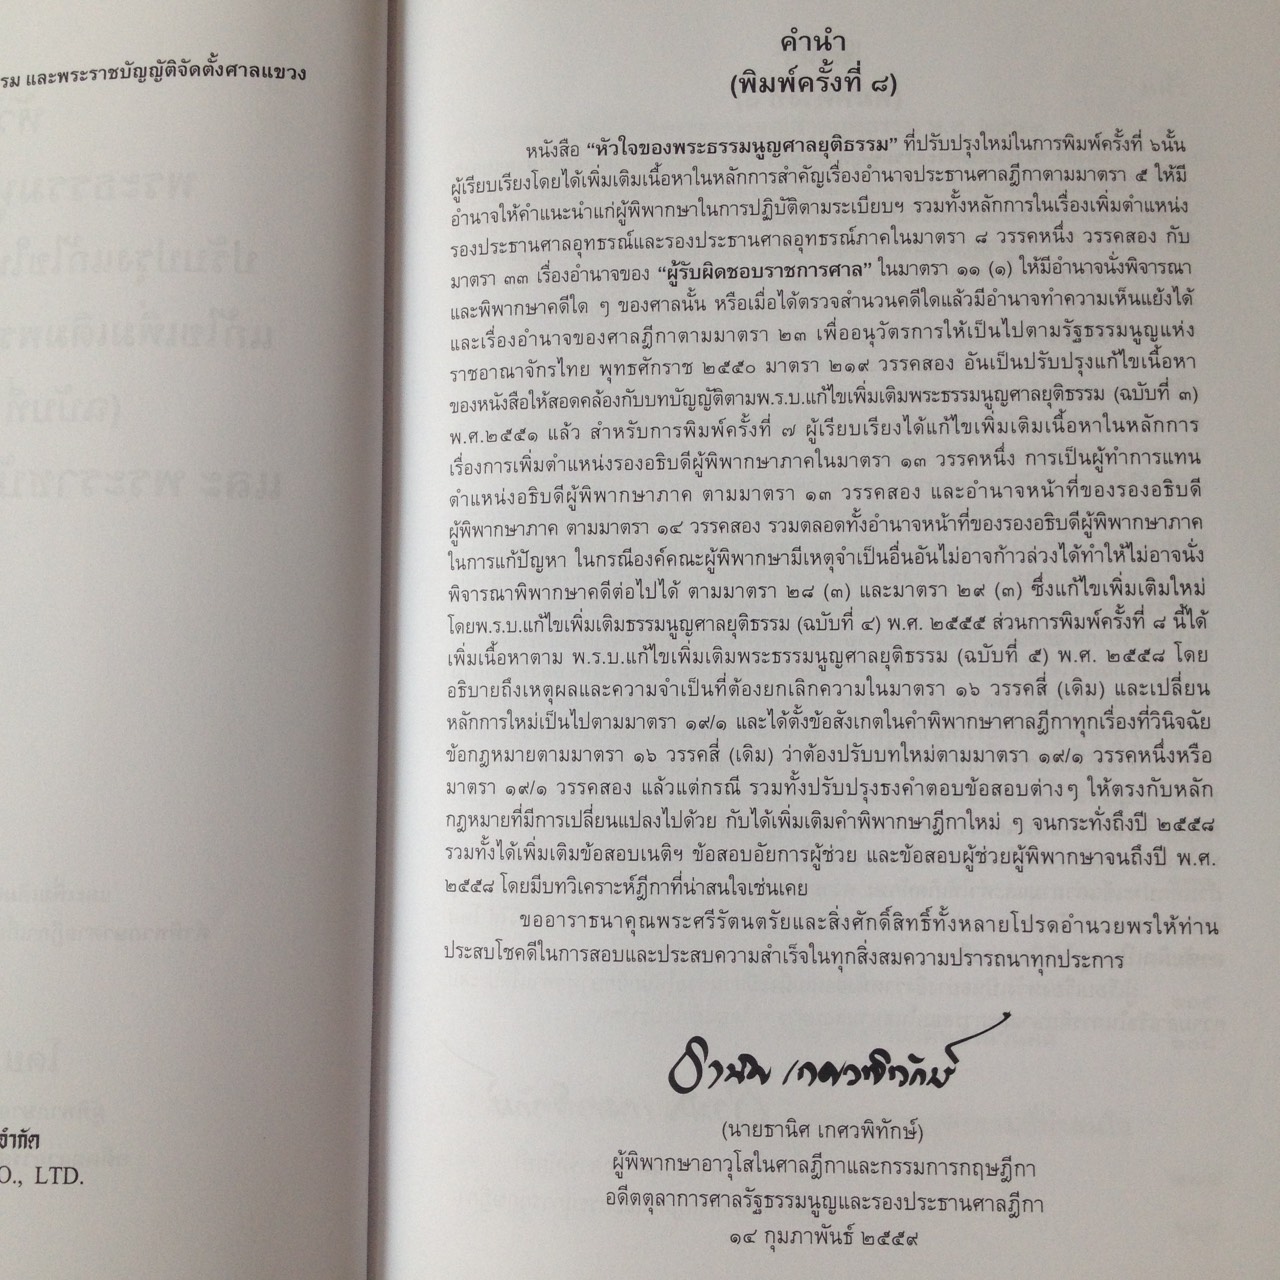 รม และพระราชบัญญัติจัดตั้งศาลแขวง
จำกัด
O., LTD.
คำนำ
(พิมพ์ครั้งที่ ๘)
หนังสือ “หัวใจของพระธรรมนูญศาลยุติธรรม” ที่ปรับปรุงใหม่ในการพิมพ์ครั้งที่ ๖นั้น
ผู้เรียบเรียงโดยได้เพิ่มเติมเนื้อหาในหลักการสำคัญเรื่องอำนาจประธานศาลฎีกาตามมาตรา ๕ ให้มี
อำนาจให้คำแนะนำแก่ผู้พิพากษาในการปฏิบัติตามระเบียบฯ รวมทั้งหลักการในเรื่องเพิ่มตำแหน่ง
รองประธานศาลอุทธรณ์และรองประธานศาลอุทธรณ์ภาคในมาตรา ๘ วรรคหนึ่ง วรรคสอง กับ
มาตรา ๓๓ เรื่องอำนาจของ “ผู้รับผิดชอบราชการศาล” ในมาตรา ๑๑ (๑) ให้มีอำนาจนั่งพิจารณา
และพิพากษาคดีใด ๆ ของศาลนั้น หรือเมื่อได้ตรวจสำนวนคดีใดแล้วมีอำนาจทำความเห็นแย้งได้
และเรื่องอำนาจของศาลฎีกาตามมาตรา ๒๓ เพื่ออนุวัตรการให้เป็นไปตามรัฐธรรมนูญแห่ง
ราชอาณาจักรไทย พุทธศักราช ๒๕๕๐ มาตรา ๒๑๙ วรรคสอง อันเป็นปรับปรุงแก้ไขเนื้อหา
ของหนังสือให้สอดคล้องกับบทบัญญัติตามพ.ร.บ.แก้ไขเพิ่มเติมพระธรรมนูญศาลยุติธรรม (ฉบับที่ ๓)
พ.ศ.๒๕๕๑ แล้ว สำหรับการพิมพ์ครั้งที่ ๗ ผู้เรียบเรียงได้แก้ไขเพิ่มเติมเนื้อหาในหลักการ
เรื่องการเพิ่มตำแหน่งรองอธิบดีผู้พิพากษาภาคในมาตรา ๑๓ วรรคหนึ่ง การเป็นผู้ทำการแทน
ตำแหน่งอธิบดีผู้พิพากษาภาค ตามมาตรา ๑๓ วรรคสอง และอำนาจหน้าที่ของรองอธิบดี
ผู้พิพากษาภาค ตามมาตรา ๑๔ วรรคสอง รวมตลอดทั้งอำนาจหน้าที่ของรองอธิบดีผู้พิพากษาภาค
ในการแก้ปัญหา ในกรณีองค์คณะผู้พิพากษามีเหตุจำเป็นอื่นอันไม่อาจก้าวล่วงได้ทำให้ไม่อาจนั่ง
พิจารณาพิพากษาคดีต่อไปได้ ตามมาตรา ๒๘ (๓) และมาตรา ๒๙ (๓) ซึ่งแก้ไขเพิ่มเติมใหม่
โดยพ.ร.บ.แก้ไขเพิ่มเติมธรรมนูญศาลยุติธรรม (ฉบับที่ ๔) พ.ศ. ๒๕๕๕ ส่วนการพิมพ์ครั้งที่ ๘ นี้ได้
เพิ่มเนื้อหาตาม พ.ร.บ.แก้ไขเพิ่มเติมพระธรรมนูญศาลยุติธรรม (ฉบับที่ ๕) พ.ศ. ๒๕๕๘ โดย
อธิบายถึงเหตุผลและความจำเป็นที่ต้องยกเลิกความในมาตรา ๑๖ วรรคสี่ (เดิม) และเปลี่ยน
หลักการใหม่เป็นไปตามมาตรา ๑๙/๑ และได้ตั้งข้อสังเกตในคำพิพากษาศาลฎีกาทุกเรื่องที่วินิจฉัย
ข้อกฎหมายตามมาตรา ๑๖ วรรคสี่ (เดิม) ว่าต้องปรับบทใหม่ตามมาตรา ๑๙/๑ วรรคหนึ่งหรือ
มาตรา ๑๙/๑ วรรคสอง แล้วแต่กรณี รวมทั้งปรับปรุงธงคำตอบข้อสอบต่างๆ ให้ตรงกับหลัก
กฎหมายที่มีการเปลี่ยนแปลงไปด้วย กับได้เพิ่มเติมคำพิพากษาฎีกาใหม่ ๆ จนกระทั่งถึงปี ๒๕๕๘
รวมทั้งได้เพิ่มเติมข้อสอบเนติฯ ข้อสอบอัยการผู้ช่วย และข้อสอบผู้ช่วยผู้พิพากษาจนถึงปี พ.ศ.
๒๕๕๘ โดยมีบทวิเคราะห์ฎีกาที่น่าสนใจเช่นเคย
ขออาราธนาคุณพระศรีรัตนตรัยและสิ่งศักดิ์สิทธิ์ทั้งหลายโปรดอำนวยพรให้ท่าน
ประสบโชคดีในการสอบและประสบความสำเร็จในทุกสิ่งสมความปรารถนาทุกประการ
ธานิศ เกศวพิทักษ์
(นายธานิศ เกศวพิทักษ์)
ผู้พิพากษาอาวุโสในศาลฎีกาและกรรมการกฤษฎีกา
อดีตตุลาการศาลรัฐธรรมนูญและรองประธานศาลฎีกา
๑๔ กุมภาพันธ์ ๒๕๕๙